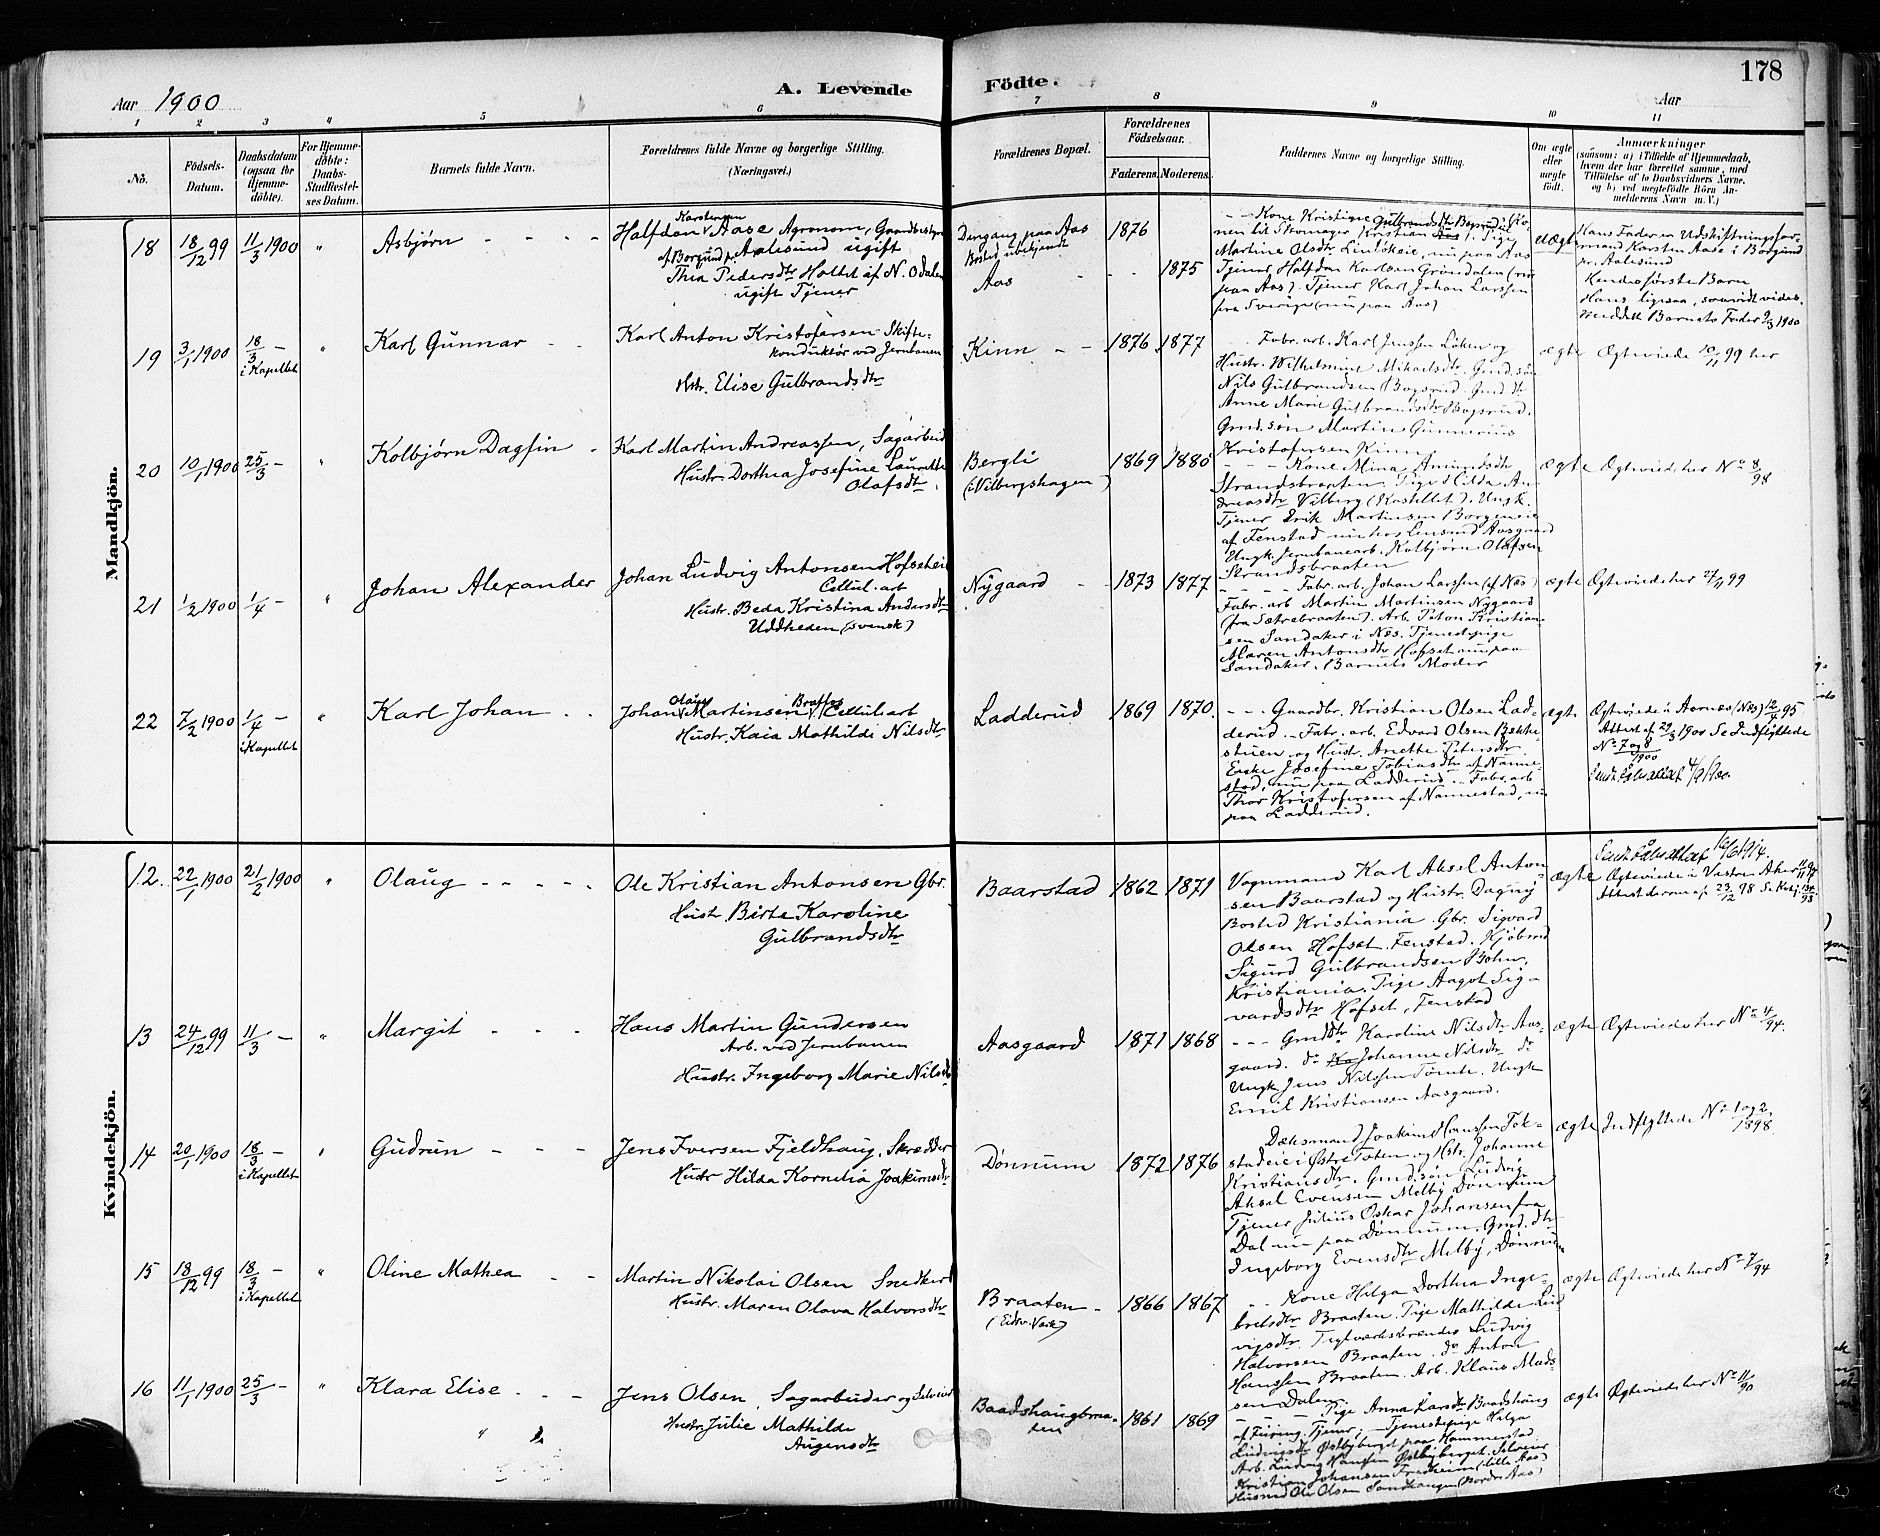 178
Aar 1900
A. Levende
Födte.
Aar
1 2 3 4 5 6 7 8 9 10 11
No.
Födsels-Datum.
Daabsdatum (ogsaa for Hjemme-döbte).
For Hjemme-döbte: Daabs-Stadfæstel-ses Datum.
Barnets fulde Navn.
Forældrenes fulde Navne og borgerlige Stilling. (Næringsvei.)
Forældrenes Bopæl.
Forældrenes Födselsaar.
Faderens. Moderens.
Faddernes Navne og borgerlige Stilling.
Om ægte eller uægte födt.
Anmærkninger
(saasom: a) i Tilfælde af Hjemmedaab, hvem der har forrettet samme, med Tilföielse af to Daabsvidners Navne, og b) ved uægtefödte Börn An-melderens Navn m. V.)
Mandkjön.
18 18/12 99 11/3 1900 " Asbjørn
Karstensen
Halfdan Aase Agronom, Gaardbestyr
af Borgund p. Aalesund ugift
Thea Pedersdtr Holtet af N. Odalen
ugift Tjener
Dengang paa Aas
Bosted ubekjendt
Aas
1876
1875
Martine Olsdtr Lindskeie, nu paa Aas
Tjener Halfdan Karlsen Grøndalen (nu
paa Aas). Tjener Karl Johan Larssen
fra Sverige (nu paa Aas)
uægte
Hans Fader er Udskiftningsfor-
mand Karsten Aase i Borgund
pr. Aalesund
Hendes første Barn
Hans ligesaa, saavidt vides.
19 3/1 1900 18/3 - i Kapellet " Karl Gunnar
Karl Anton Kristofersen Skifte-
konduktør ved Jernbanen
Hstr. Elise Gulbrandsdtr
Kinn
1876 1877
Fabr. arb. Karl Jenssen Løken og
Hustr. Wilhelmine Mikaelsdtr. Gmd. søn
Nils Gulbrandsen Bogsrud. Gmd. dtr
Anne Marie Gulbrandsdtr Bogsrud.
Gmd. søn Martin Gunnerius
Kristofersen Kinn
ægte
Ægteviede 10/11 99 her
20 10/1 1900 25/3 - " Kolbjørn Dagfin
Karl Martin Andreassen, Sagarbeid
Hustr. Dorthea Josefine Laurette
Olafsdtr.
Bergli
(i Vilbergshagen)
1869 1880
Kone Mina Amundsdtr
Strandsbraaten. Pige Hilda An-
dreasdtr Vilberg (Kastellet). Ungk.
Tjener Erik Martinsen Borgeneie
af Fenstad nu hos Aasgaard
Ungk. Jernbanearb. Kolbjørn Olafsen
Strandsbraaten
ægte
Ægteviede her No 8/98
21 1/2 1900 1/4 - " Johan Alexander
Johan Ludvig Antonsen Hofseteie
Cellul. arb
Hustr. Beda Kristina Andersdtr
Uddheden (svensk)
Nygaard
1873 1877
Fabr. arb. Johan Larssen (af Næs)
Fabr. arb Martin Martinsen Nygaard
(fra Sætrebraaten). Arb. Peton Kristian-
sen Sandaker i Næs. Tjenestepige
Maren Antonsdtr Hofset nu paa
Sandaker. Barnets Moder
ægte
Ægteviede her 99
22 7/2 1900 1/4 - i Kapellet " Karl Johan
Johan Martinsen Cellul. arb
Hustr. Kaia Mathilde Nilsdtr
Ladderud
1869 1870.
Gaardbr. Kristian Olsen Lad-
derud. Fabr. arb. Edvard Olsen Bekke-
stuen og Hustr. Anette Petersdtr.
Enke Josefine Tobiasdtr af Nanne-
stad, nu paa Ladderud. Fabr. arb
Thor Kristofersen af Nannestad, nu
paa Ladderud.
ægte
Ægteviede i Aarnes (Næs) 12/4 95
Attest af 29/3 1900 Se Indflyttede
No 7 og 8/1900
Kvindekjön.
12. 22/1 1900 21/2 1900 " Olaug
Ole Kristian Antonsen Gbr.
Hustr. Birte Karoline
Gulbrandsdtr
Baarstad
1862 1871
Vognmand Karl Aksel Anton-
sen Baarstad og Hustr. Dagny
Bosted Kristiania. Gbr. Sigvard
Olsen Hofset. Fenstad. Kjøbmd
Sigurd Gulbrandsen Bohn,
Kristiania. Pige Aagot Sig-
vardsdtr Hofset, Fenstad
ægte
Ægteviede i Vestre Aker
Attest derom af 23/12 98
13 24/12 99 11/3 - " Margit
Hans Martin Gundersen
Arb. ved Jernbanen
Hustr. Ingeborg Marie Nilsdtr
Aasgaard
1871 1868
Gmddtr Karoline Nilsdtr Aas-
gaard. do Johanne Nilsdtr do
Ungk Jens Nilssen Tømte. Ungk
Emil Kristiansen Aasgaard.
ægte
Ægteviede her No 4/94.
14 20/1 1900 18/3 - i Kapellet " Gudrun
Jens Iversen Fjeldhaug, Skrædder
Hustr Hilda Kornelia Joakimsdtr
Dønnum
1872 1876
Dæksmand Joakim Hanssen Fok-
stadeie i Østre Toten og Hstr. Johanne
Kristiansdtr. Gmd. søn Ludvig
Aksel Evensen Melby Dønnum
Tjener Julius Oskar Johansen fra
Dal nu paa Dønnum. Gmd. dtr
Ingeborg Evensdtr Melby, Dønnum
ægte
Indflyttede No 1 og 2/1898.
15 18/12 99 18/3 - i Kapellet " Oline Mathea
Martin Nikolai Olsen Snedker
Hustr. Maren Olava Halvorsdtr
Braaten
(Eidsv. Værk)
1866 1867
Kone Helga Dorthea Inge-
bretsdtr Braaten. Pige Mathilde Lud-
vigsdtr. Teglværksbrænder Ludvig
Halvorsen Braaten. do Anton
Hanssen Braaten. Arb. Klaus Mads-
sen Dalen
ægte
Ægteviede her No 7/94
16 11/1 1900 25/3 - " Klara Elise
Jens Olsen, Sagarbeider og Selveier
Hustr Julie Mathilde
Augensdtr
Baadshaugbraa-
ten
1861 1869
Pige Anna Larsdtr Baadshaug
af Furing. Tjener, Tjenestepige Helga
Ludvigsdtr Østbyberget paa Hammerstad
Arb. Ludvig Hanssen Østbyberget. Selveier
Kristian Johansen Fredheim (Lille Aas)
Husmd Ole Olsen Sandhaugen (Nordre Aas)
ægte
Ægteviede her No 11/90